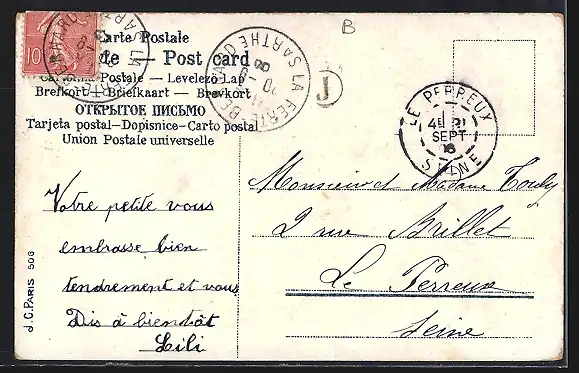 B
Carte Postale
Post card
Postale — Levelező Lap
Brefkort — Briefkaart — Brevkort
ОТКРЫТОЕ ПИСЬМО
Tarjeta postal—Dopisnice—Carto postal
Union Postale universelle
10
LA FERTE-BERNARD SARTHE
J
LE PERREUX
4E 21
SEPT
SEINE
Monsieur et Madame Touly
2 rue Brillet
Le Perreux
Seine
Votre petite vous
embrasse bien
tendrement et vous
Dis à bientôt
Lili
J.C. PARIS 506